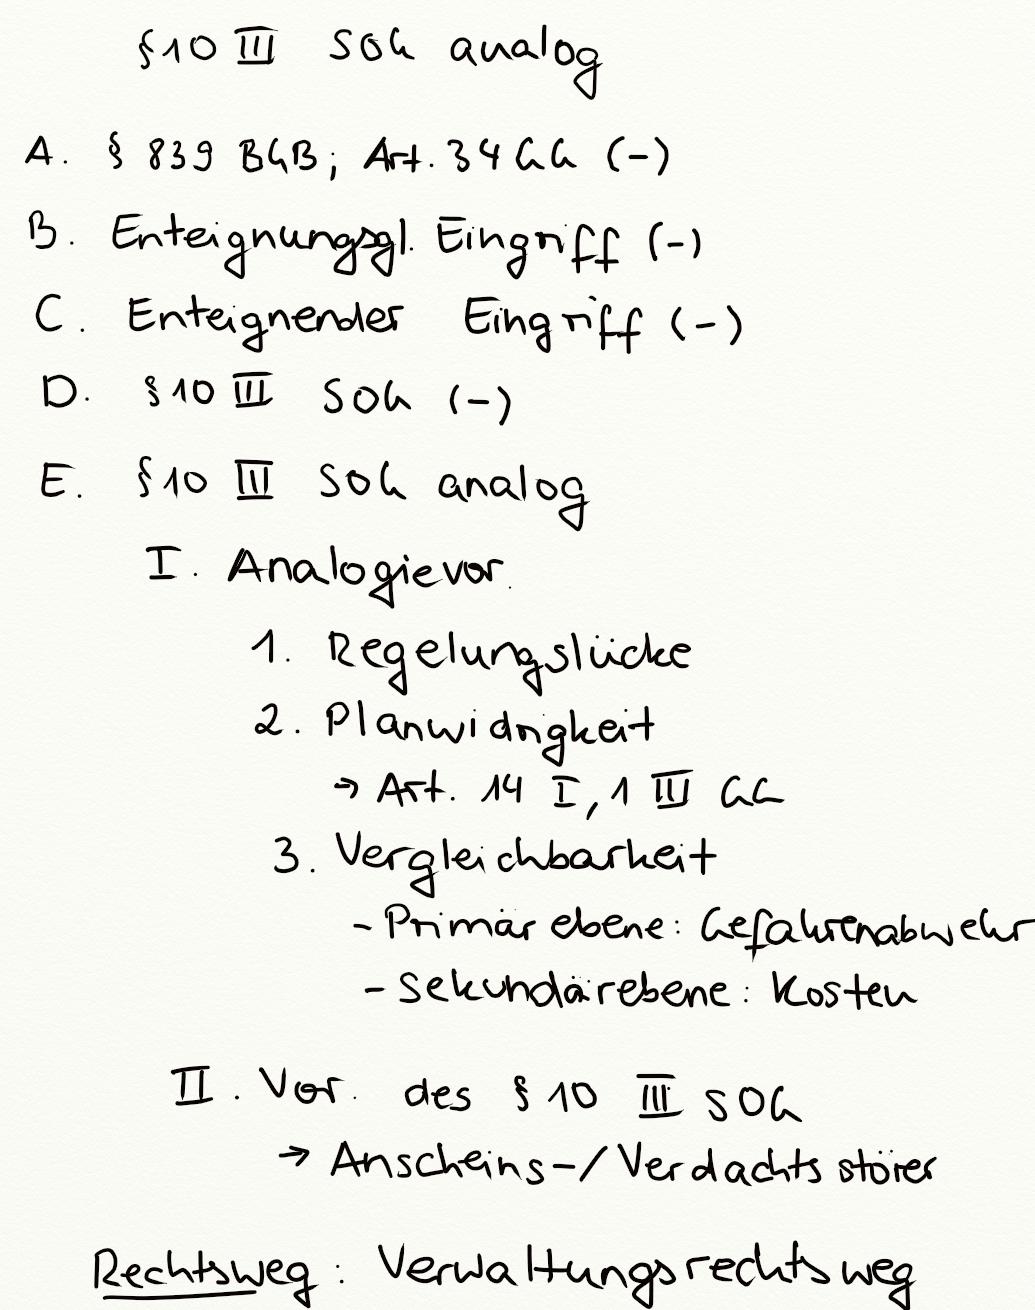 §10 III SOG analog
A. § 839 BGB; Art. 34 GG (-)
B. Enteignungsgl. Eingriff (-)
C. Enteignender Eingriff (-)
D. §10 III SOG (-)
E. §10 III SOG analog
I. Analogievor.
1. Regelungslücke
2. Planwidrigkeit
→ Art. 14 I, 1 III GG
3. Vergleichbarkeit
- Primärebene: Gefahrenabwehr
- Sekundärebene: Kosten
II. Vor. des § 10 III SOG
→ Anscheins-/Verdachtsstörer
Rechtsweg: Verwaltungsrechtsweg